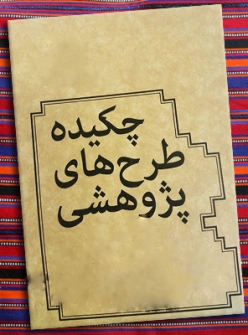 چکیده
طرح‌های
پژوهشی